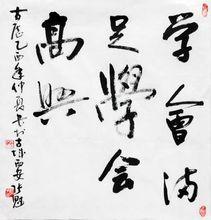 学會满
足學会
高興
古历乙酉年仲夏书于古城西安